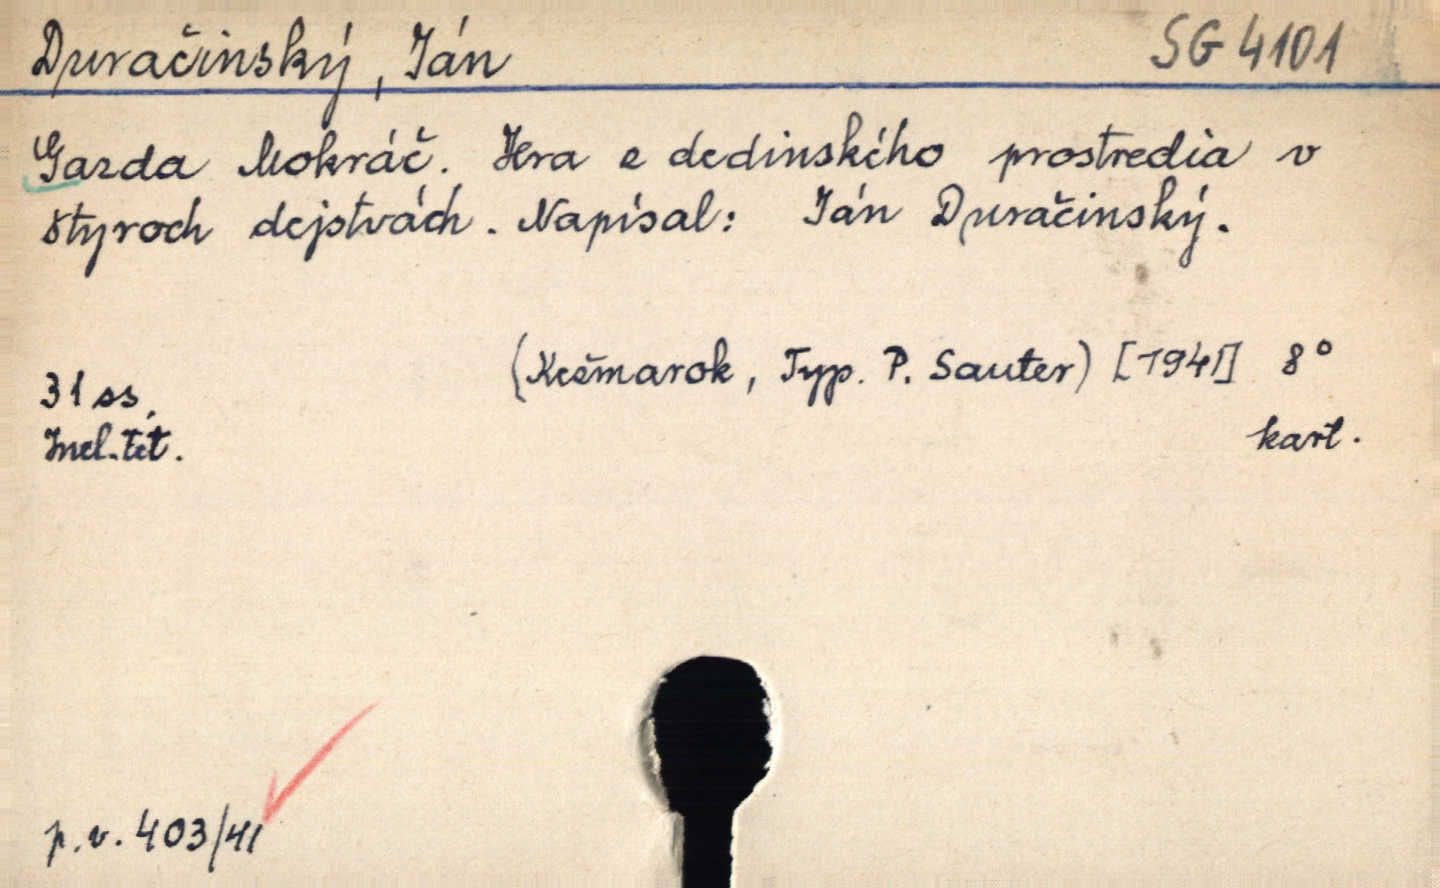 Duračinský, Ján
SG 4101
Gazda Mokráč. Hra e dedinského prostredia v
štyroch dejstvách. Napísal: Ján Duračinský.
(Kežmarok, Typ. P. Sauter) [1941] 8°
31 ss,
kart.
p.v. 403/41